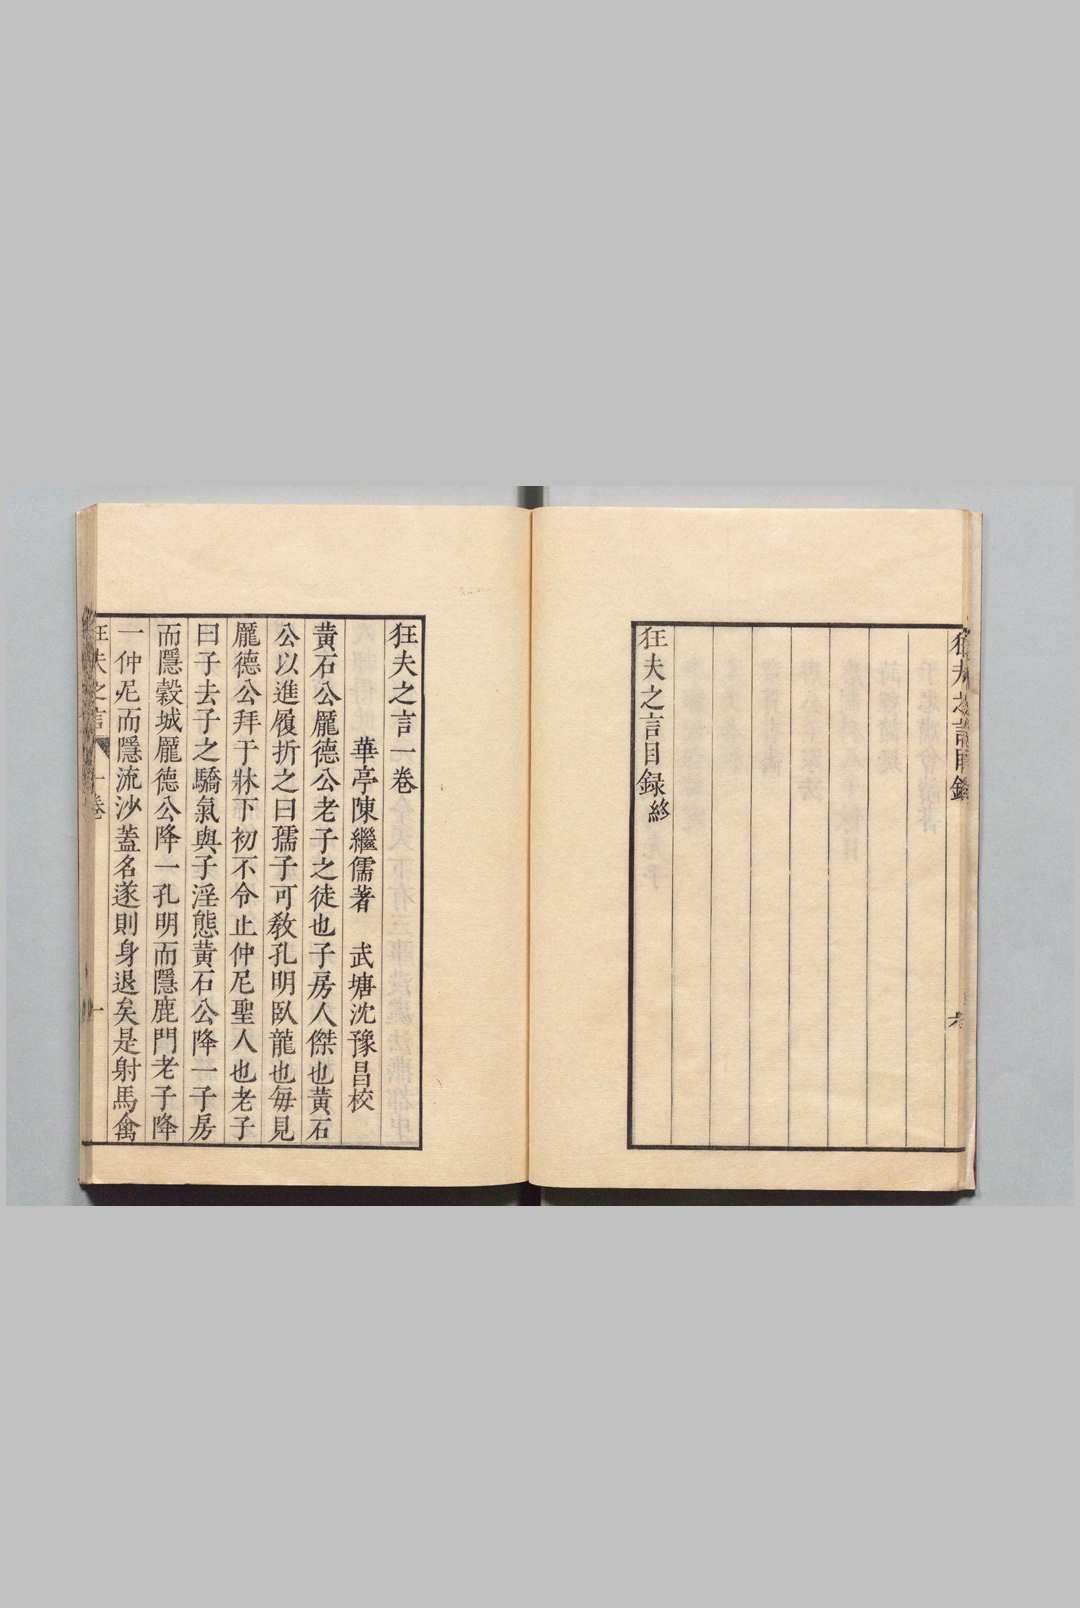 狂夫之言目録終
狂夫之言一卷
華亭陳繼儒著　武塘沈豫昌校
黃石公龎德公老子之徒也子房人傑也黃石
公以進履折之曰孺子可敎孔明臥龍也每見
龎德公拜于牀下初不令止仲尼聖人也老子
曰子去子之驕氣與子淫態黃石公降一子房
而隱穀城龎德公降一孔明而隱鹿門老子降
一仲尼而隱流沙蓋名遂則身退矣是射馬禽
狂夫之言　一卷　一